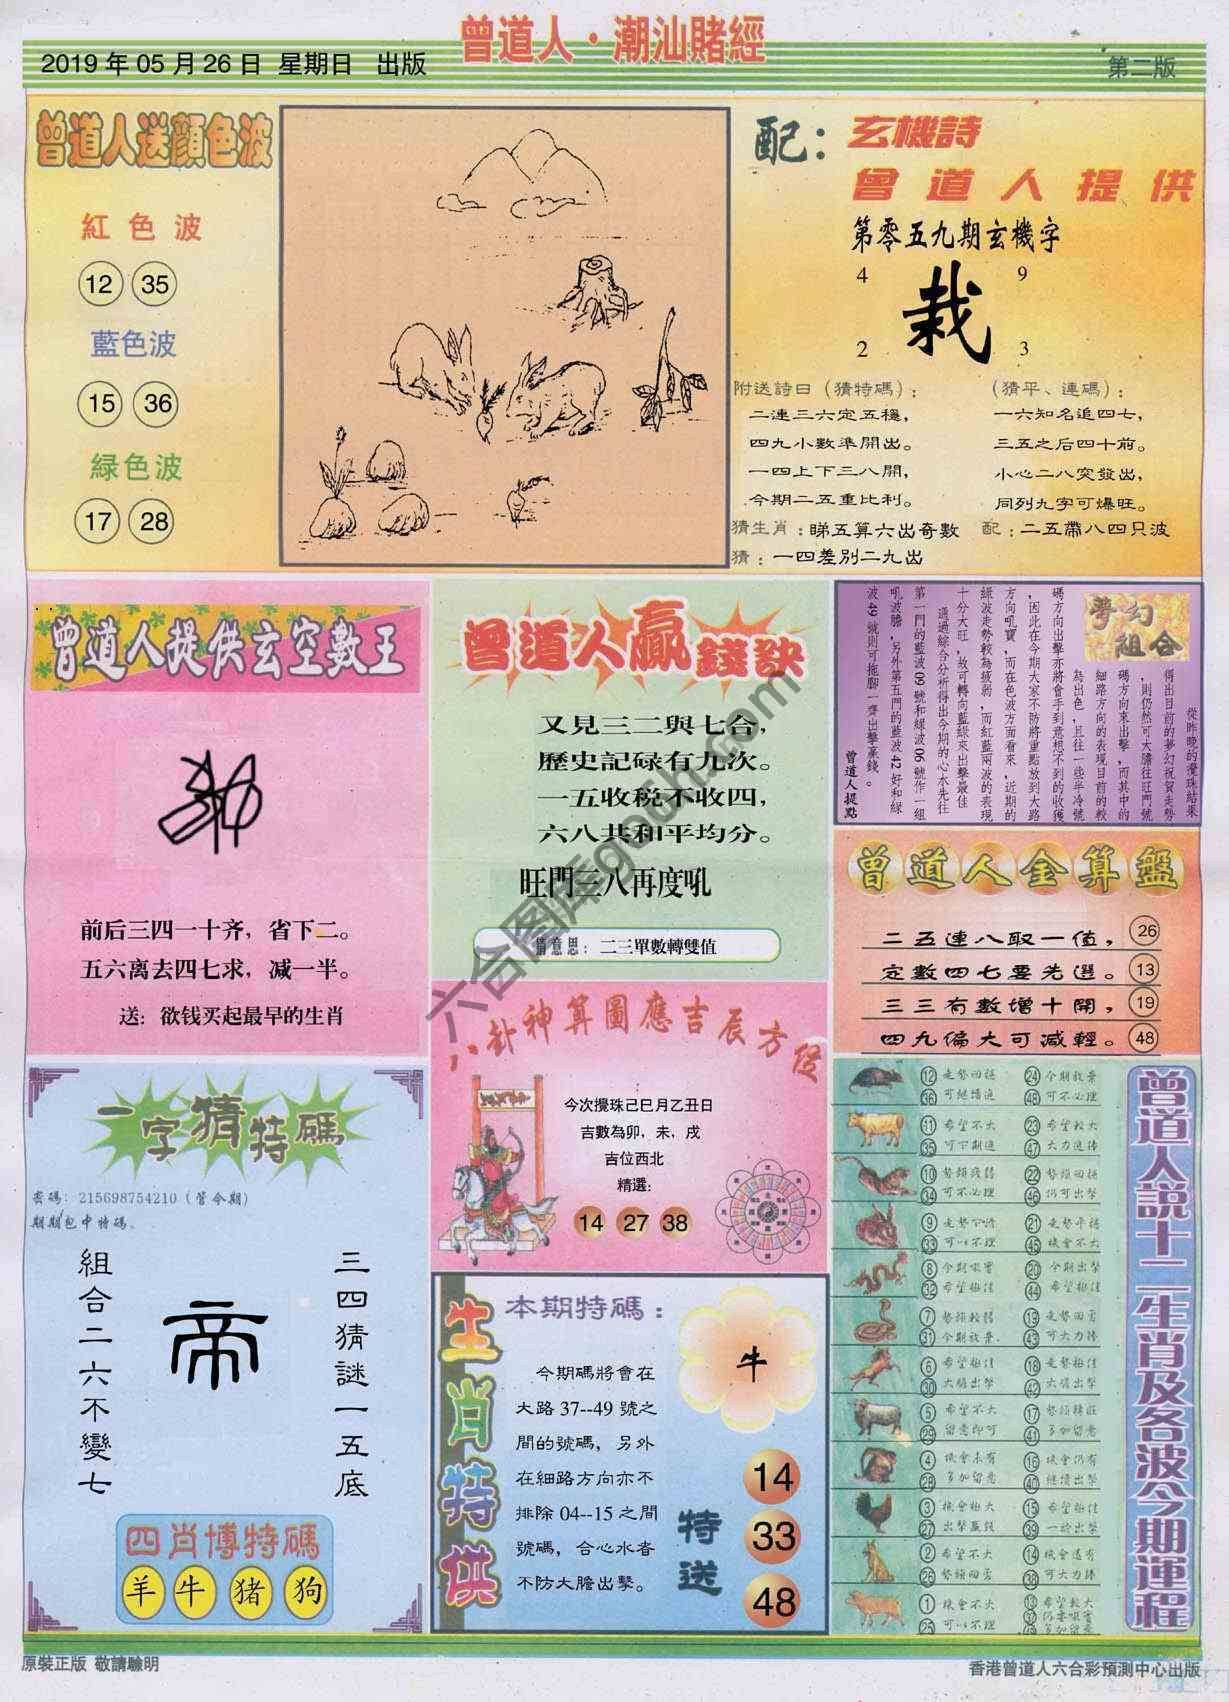 曾道人·潮汕賭經
2019 年 05 月 26 日 星期日 出版
第二版
曾道人送顔色波
紅色波
12 35
藍色波
15 36
緑色波
17 28
配：玄機詩
曾道人提供
第零五九期玄機字
4 9
栽
2 3
附送詩曰（猜特碼）：
二連三六定五穩，
四九小數準開出。
一四上下三八開，
今期二五重比利。
（猜平、連碼）：
一六知名追四七，
三五之后四十前。
小心二八突發出，
同列九字可爆旺。
猜生肖：睇五算六出奇數
配：二五帶八四只波
猜：一四差別二九出
曾道人提供玄空數王
前后三四一十齐，省下二。
五六离去四七求，减一半。
送：欲钱买起最早的生肖
曾道人贏錢訣
又見三二與七合，
歷史記碌有九次。
一五收税不收四，
六八共和平均分。
旺門三八再度吼
猜意思：二三單數轉雙值
夢幻組合
從昨晚的攪珠結果
得出目前的夢幻祝賀走勢
，則仍然可大膽往旺門號
碼方向來出擊，而其中的
細路方向的表現目前的較
為出色，且往一些半冷號
碼方向出擊亦將會手到意想不到的收獲
，因此在今期大家不防將重點放到大路
方向吼實，而在色波方面看來，近期的
綠波走勢較為疲弱，而紅藍兩波的表現
十分大旺，故可轉向藍綠來出擊最佳
通過綜合分析得出今期的心水先往
第一門的藍波 09 號和綠波 06 號作一組
吼波膽，另外第五門的藍波 42 好和綠
波 49 號則可拖腳一齊出擊贏錢。
曾道人提點
曾道人金算盤
二五連八取一值， 26
定數四七要先選。 13
三三有數增十開， 19
四九偏大可减輕。 48
八卦神算圖應吉辰方位
今次攪珠己巳月乙丑日
吉數為卯，未，戌
吉位西北
精選：
14 27 38
一字猜特碼
密碼：215698754210（管今期）
期期包中特碼。
三四猜謎一五底
帝
組合二六不變七
四肖博特碼
羊 牛 猪 狗
生肖特供
本期特碼：
今期碼將會在
大路 37--49 號之
間的號碼，另外
在細路方向亦不
排除 04--15 之間
號碼，合心水者
不防大膽出擊。
牛
特送
14
33
48
曾道人説十二生肖及各波今期運程
12 36 走勢回穩 可繼續追
24 48 今期放棄 可不必理
11 35 希望不大 可下期追
23 47 希望較大 大力追捧
10 34 勢頗疲弱 可不必理
22 46 勢頗回穩 仍可出擊
9 33 走勢下滑 可以不理
21 45 走勢平穩 機會不大
8 32 今期吼實 希望極佳
20 44 今期出擊 希望極佳
7 31 勢頗較弱 今期放棄
19 43 走勢回勇 可大力捧
6 30 希望極佳 大膽出擊
18 42 走勢極佳 大膽出擊
5 29 希望不大 留意即可
17 41 勢頗轉旺 多加留意
4 28 機會未有 多加留意
16 40 機會仍有 繼續出擊
3 27 機會極大 出擊贏錢
15 39 希望極佳 一於出擊
2 26 希望不大 勢頗回勇
14 38 機會還有 可大力捧
1 25 機會不大 可以不理
13 37 希望較大 仍要吼實
六合图库go6h.com
原裝正版 敬請驗明
香港曾道人六合彩預測中心出版